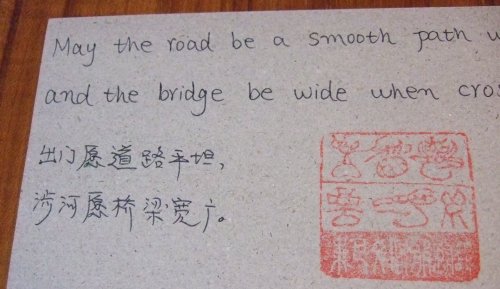 May the road be a smooth path
and the bridge be wide when
出门愿道路平坦，
涉河愿桥梁宽广。